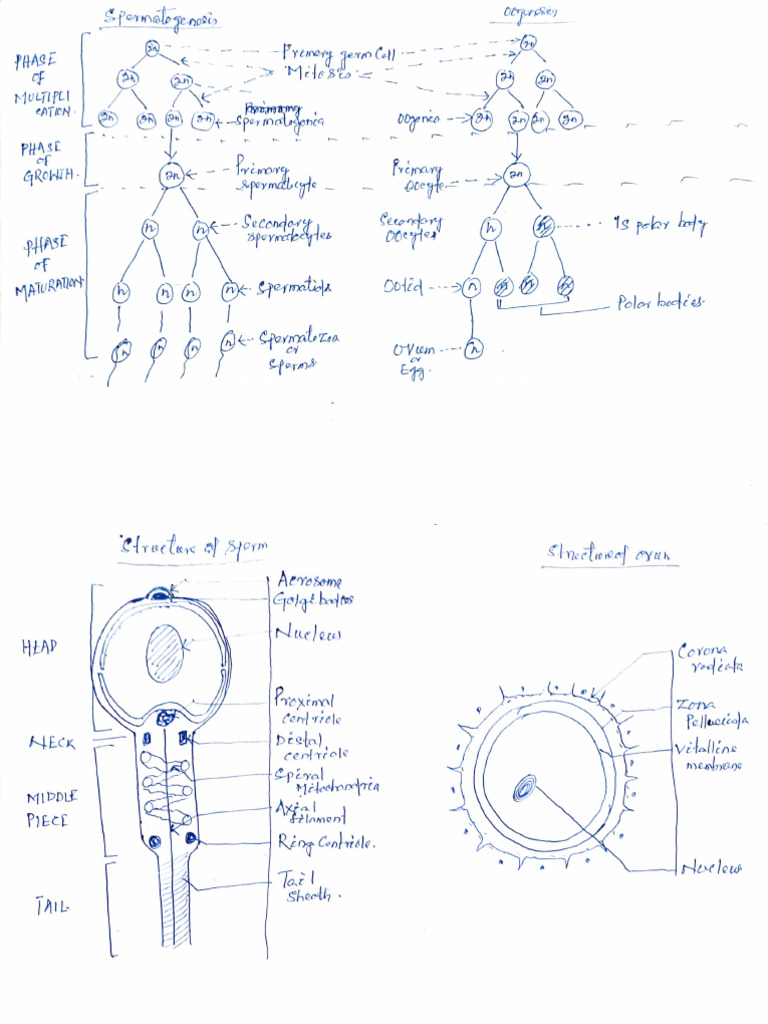 Spermatogenosis
Oogenosis
PHASE
OF
MULTIPLI
CATION.
2n
Primary germ Cell
2n
Mitosis
2n 2n
2n 2n
2n 2n 2n 2n
Spermatogonia
Oogonia
2n 2n 2n 2n
PHASE
OF
GROWTH.
2n
Primary
Spermatocyte
Primary
Oocyte
2n
PHASE
OF
MATURATION
n n
Secondary
Spermatocytes
Secondary
Oocytes
n n
Is polar body
n n n n
Spermatids
Ootid
n n n n
Polar bodies
n n n n
Spermatozoa
or
Sperms
Ovum
or
Egg.
n
Structure of Sperm
Structure of ovum
HEAD
NECK
MIDDLE
PIECE
TAIL
Acrosome
Golgi bodies
Nucleus
Proximal
centriole
Distal
centriole
Spiral
Mitochondria
Axial
filament
Ring Centriole.
Tail
Sheath.
Corona
radiata
Zona
Pellucida
Vitelline
membrane
Nucleus